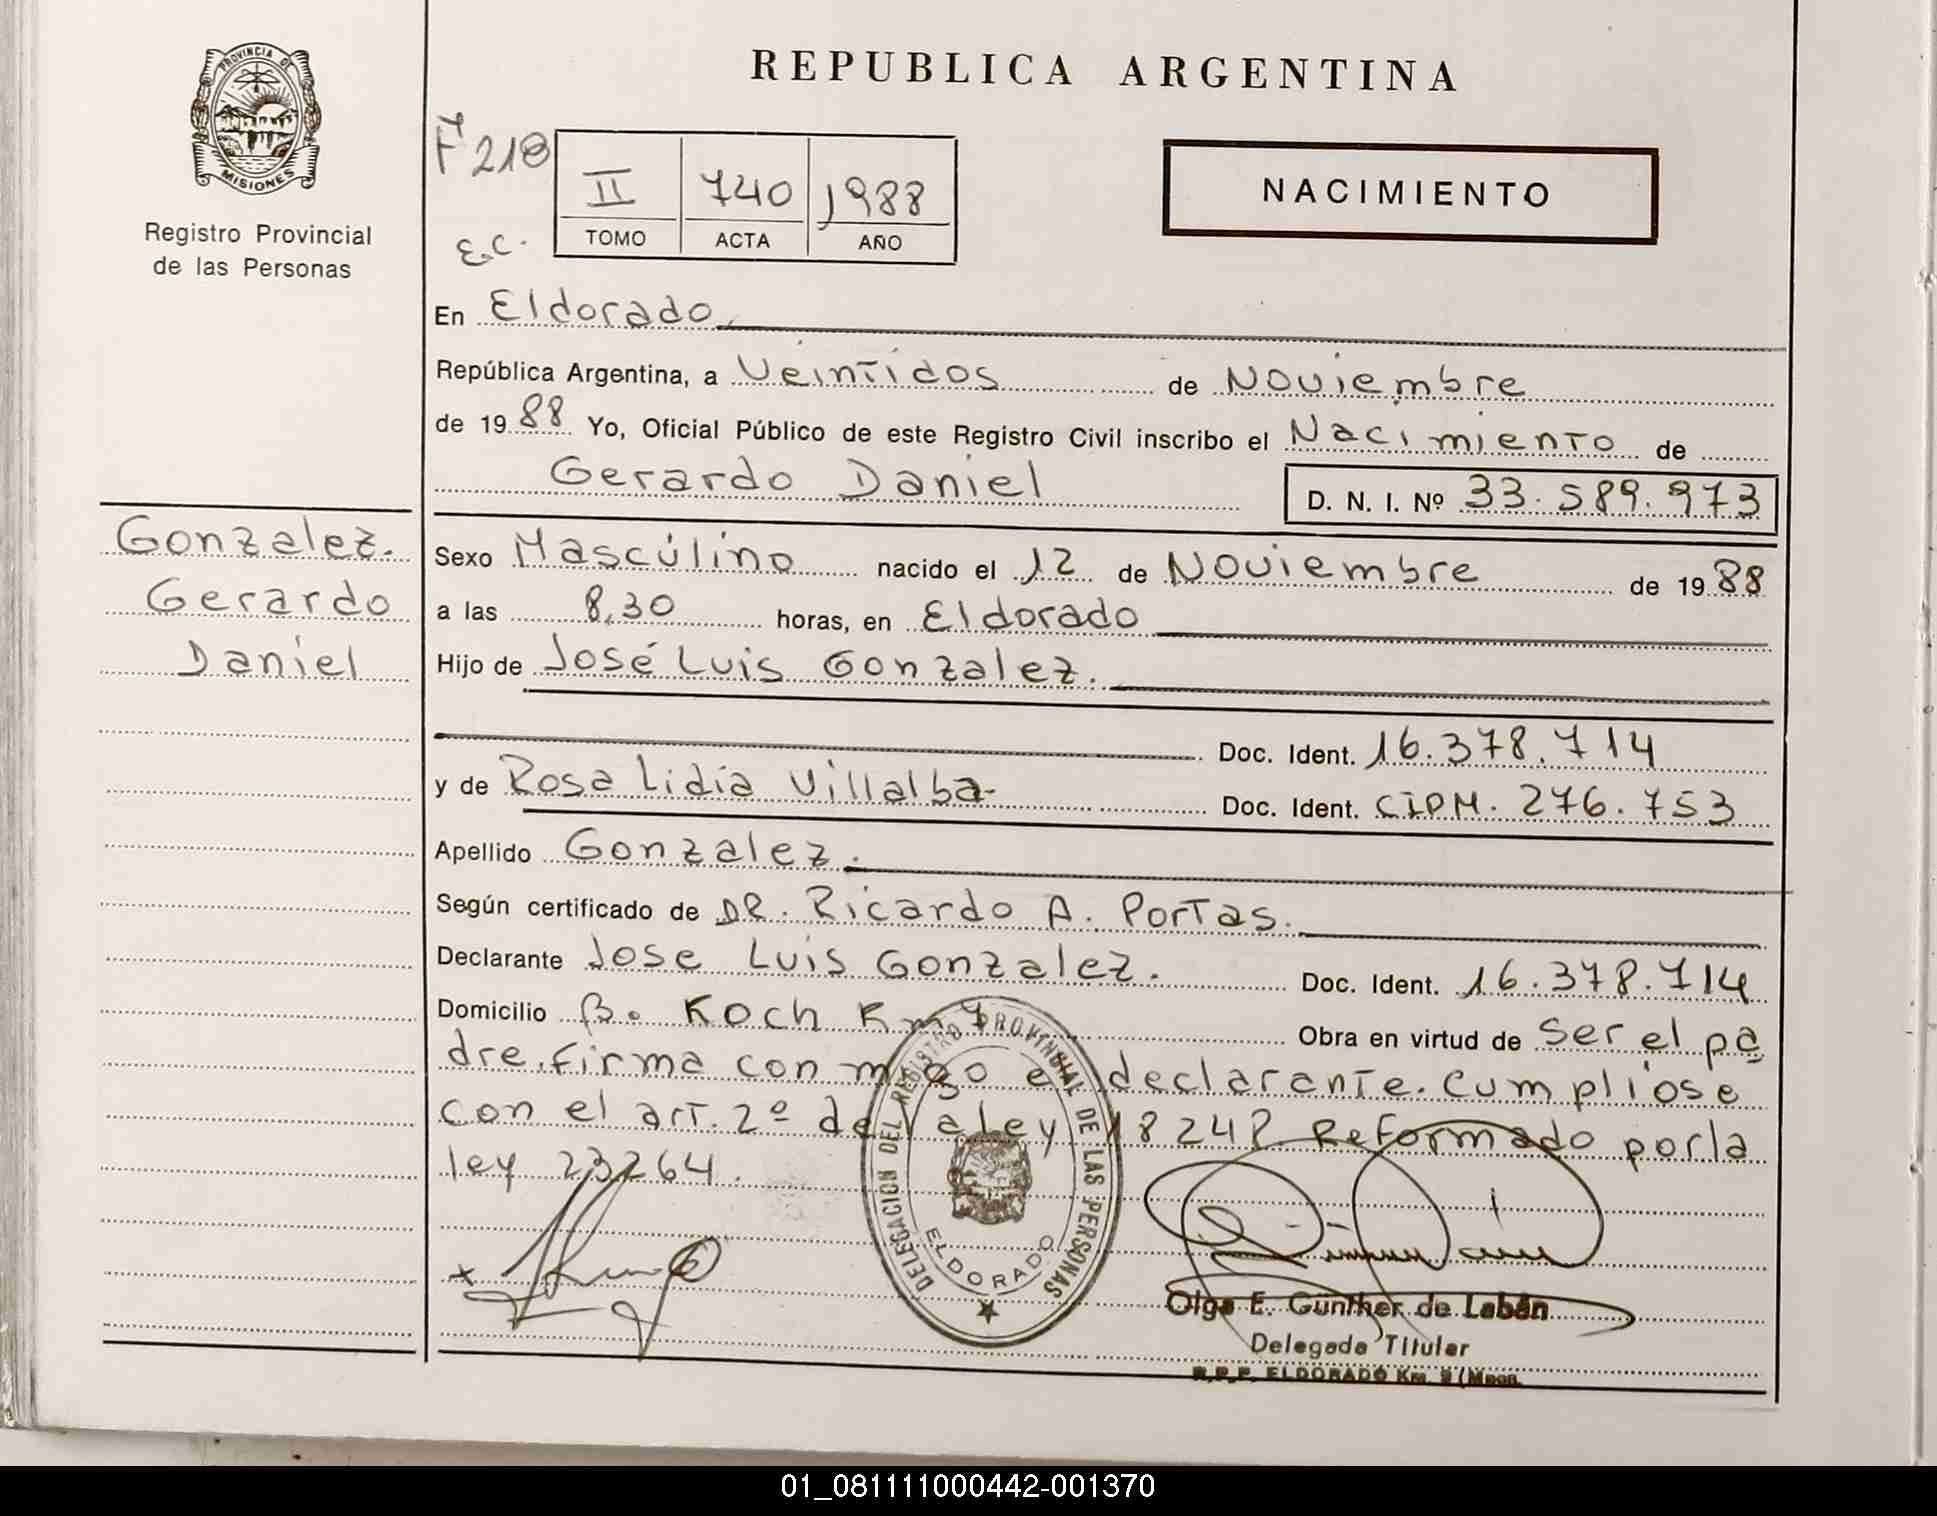 PROVINCIA DE
MISIONES
Registro Provincial
de las Personas
REPUBLICA ARGENTINA
F 210
II 740 1988
TOMO ACTA AÑO
E.C.
NACIMIENTO
En Eldorado
República Argentina, a Veintidos de Noviembre
de 1988 Yo, Oficial Público de este Registro Civil inscribo el Nacimiento de
Gerardo Daniel D. N. I. Nº 33.589.973
Gonzalez.
Gerardo
Daniel
Sexo Mascúlino nacido el 12 de Noviembre de 1988
a las 8,30 horas, en Eldorado
Hijo de José Luis Gonzalez.
Doc. Ident. 16.378.714
y de Rosa Lidia Villalba Doc. Ident. CIPM. 276.753
Apellido Gonzalez.
Según certificado de DR. Ricardo A. Portas.
Declarante Jose Luis Gonzalez. Doc. Ident. 16.378.714
Domicilio B. Koch Km 7 Obra en virtud de ser el pa
dre. firma con migo el declarante. Cumpliose
con el art. 2º de la ley 18248 Reformado por la
ley 23264.
DELEGACION DEL REGISTRO PROVINCIAL DE LAS PERSONAS
ELDORADO
Olga E. Günther de Labán
Delegada Titular
R.P.P. ELDORADO Km. 9 (Mnes.
01_081111000442-001370